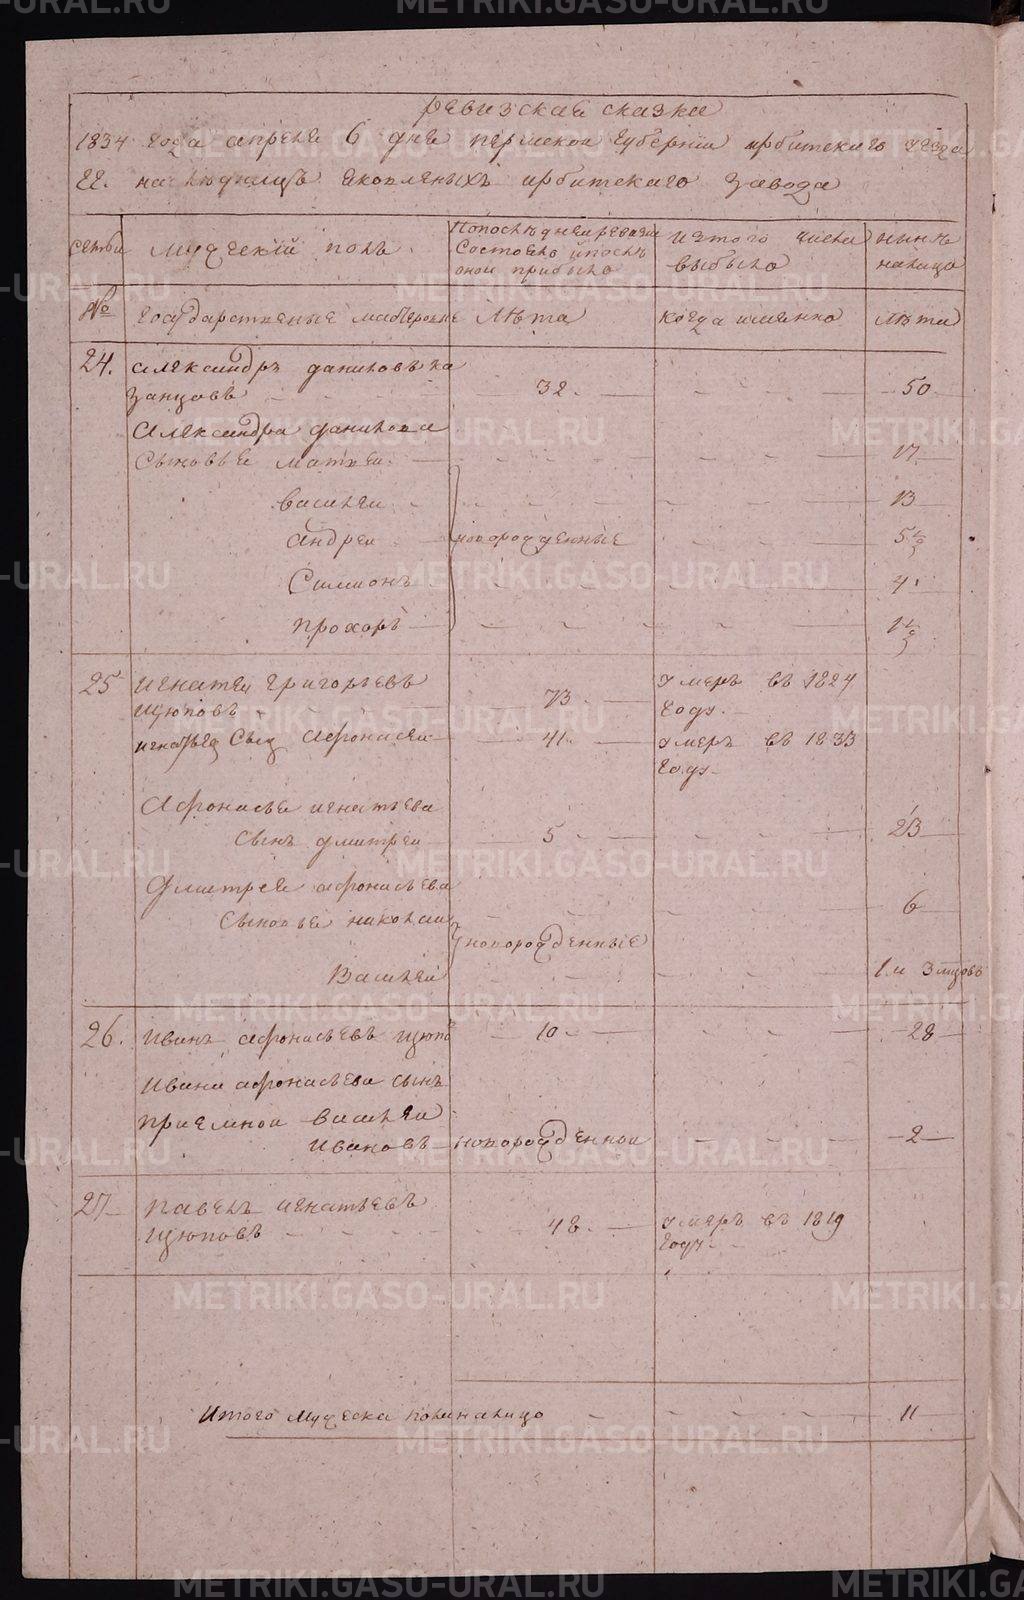 ревизская сказка
1834 года апреля 6 дня пермской Губернии ирбитскаго уезда
ГГ. наследниц Яковлевыхъ ирбитскаго завода
семьи
мужескій полъ
Попоследнеи ревизіи
Состояло ипослѣ
оной прибыло
изтого числа
выбыло
нынѣ
налицо
№
государственые мастеровые
лѣта
когда именно
лѣта
24. Александръ даниловъ ка
занцовъ 32. 50
Александра данилова
Сыновье матвеи 17
василеи 13
андреи новорожденные 5½
Симионъ 4
прохоръ 1½
25 игнатеи григорьевъ умеръ въ 1824
щюповъ 73 году.
игнатья Сын Афонасеи 41. умеръ въ 1833
году
Афонасья игнатьева
сынъ дмитреи 5 23
Дмитрея афонасьева
Сыновье николаи 6
новорожденные
Василеи 1 и 3 мцовъ
26. иванъ афонасьевъ щюпо 10 28
ивана афонасьева сынъ
приемной василеи
ивановъ новорожденнои 2
27 павелъ игнатьевъ
щюповъ 48 умеръ въ 1819
году
Итого мужеска полу налицо 11
METRIKI.GASO-URAL.RU